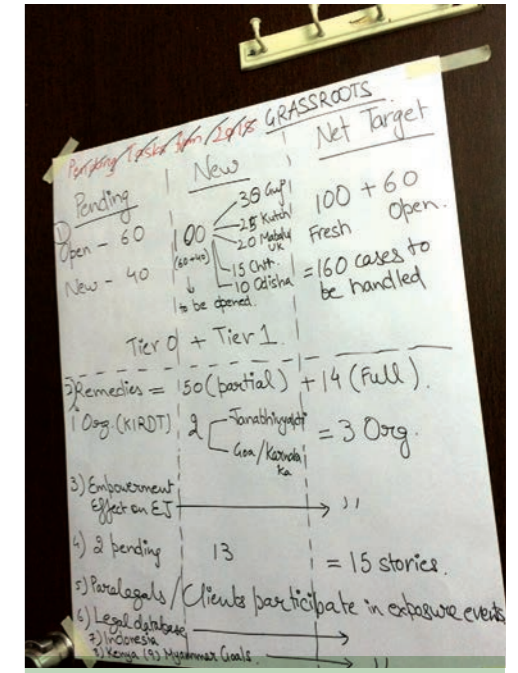 Pending Tasks from 2018 GRASSROOTS
Pending | New | Net Target
1) Open - 60
New - 40
100
(60+40)
↓
to be opened.
30 Guj
25 Kutch
20
UK
15 Chtt.
10 Odisha
100 + 60
Fresh Open.
= 160 cases to
be handled
Tier 0 + Tier 1
2) Remedies = 50 (partial) + 14 (Full).
1 Org. (KIRDT) 2 Janabhivyakti = 3 Org.
Goa/Karnata
ka
3) Empowerment
Effect on EJ → ''
4) 2 pending 13 = 15 stories.
5) Paralegals / Clients participate in exposure events
6) Legal database →
7) Indonesia
8) Kenya (9) Myanmar Goals. → ''